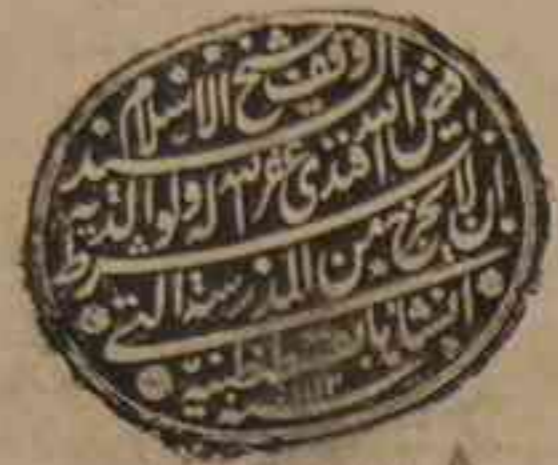 وقف شيخ الاسلام
السيد فيض الله افندى غفر الله له ولوالديه
بشرط ان لا يخرج من المدرسة التي
انشاها بقسطنطينية
سنة ١١١٢